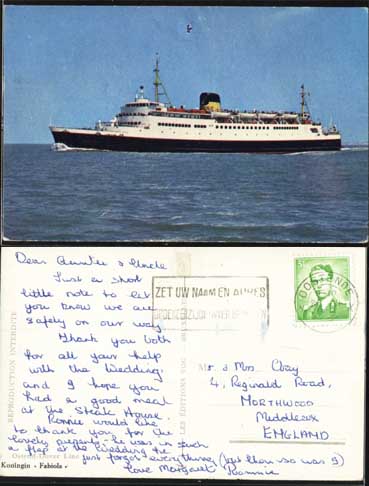 Dear Auntie & Uncle
Just a short
little note to let
you know we are
safely on our way.
Thank you both
for all your help
with the Wedding
and I hope you
had a good meal
at the Steak House.
Ronnie would like
to thank you for the
lovely presents - he was in such
a flap at the wedding he
just forgot everything (but then so was I)
Love Margaret & Ronnie
ZET UW NAAM EN ADRES
OOSTENDE
Mr & Mrs
4, Reginald Road,
NORTHWOOD
Middlesex
ENGLAND
REPRODUCTION INTERDITE
LES EDITIONS
Ostend-Dover Line
Koningin - Fabiola -